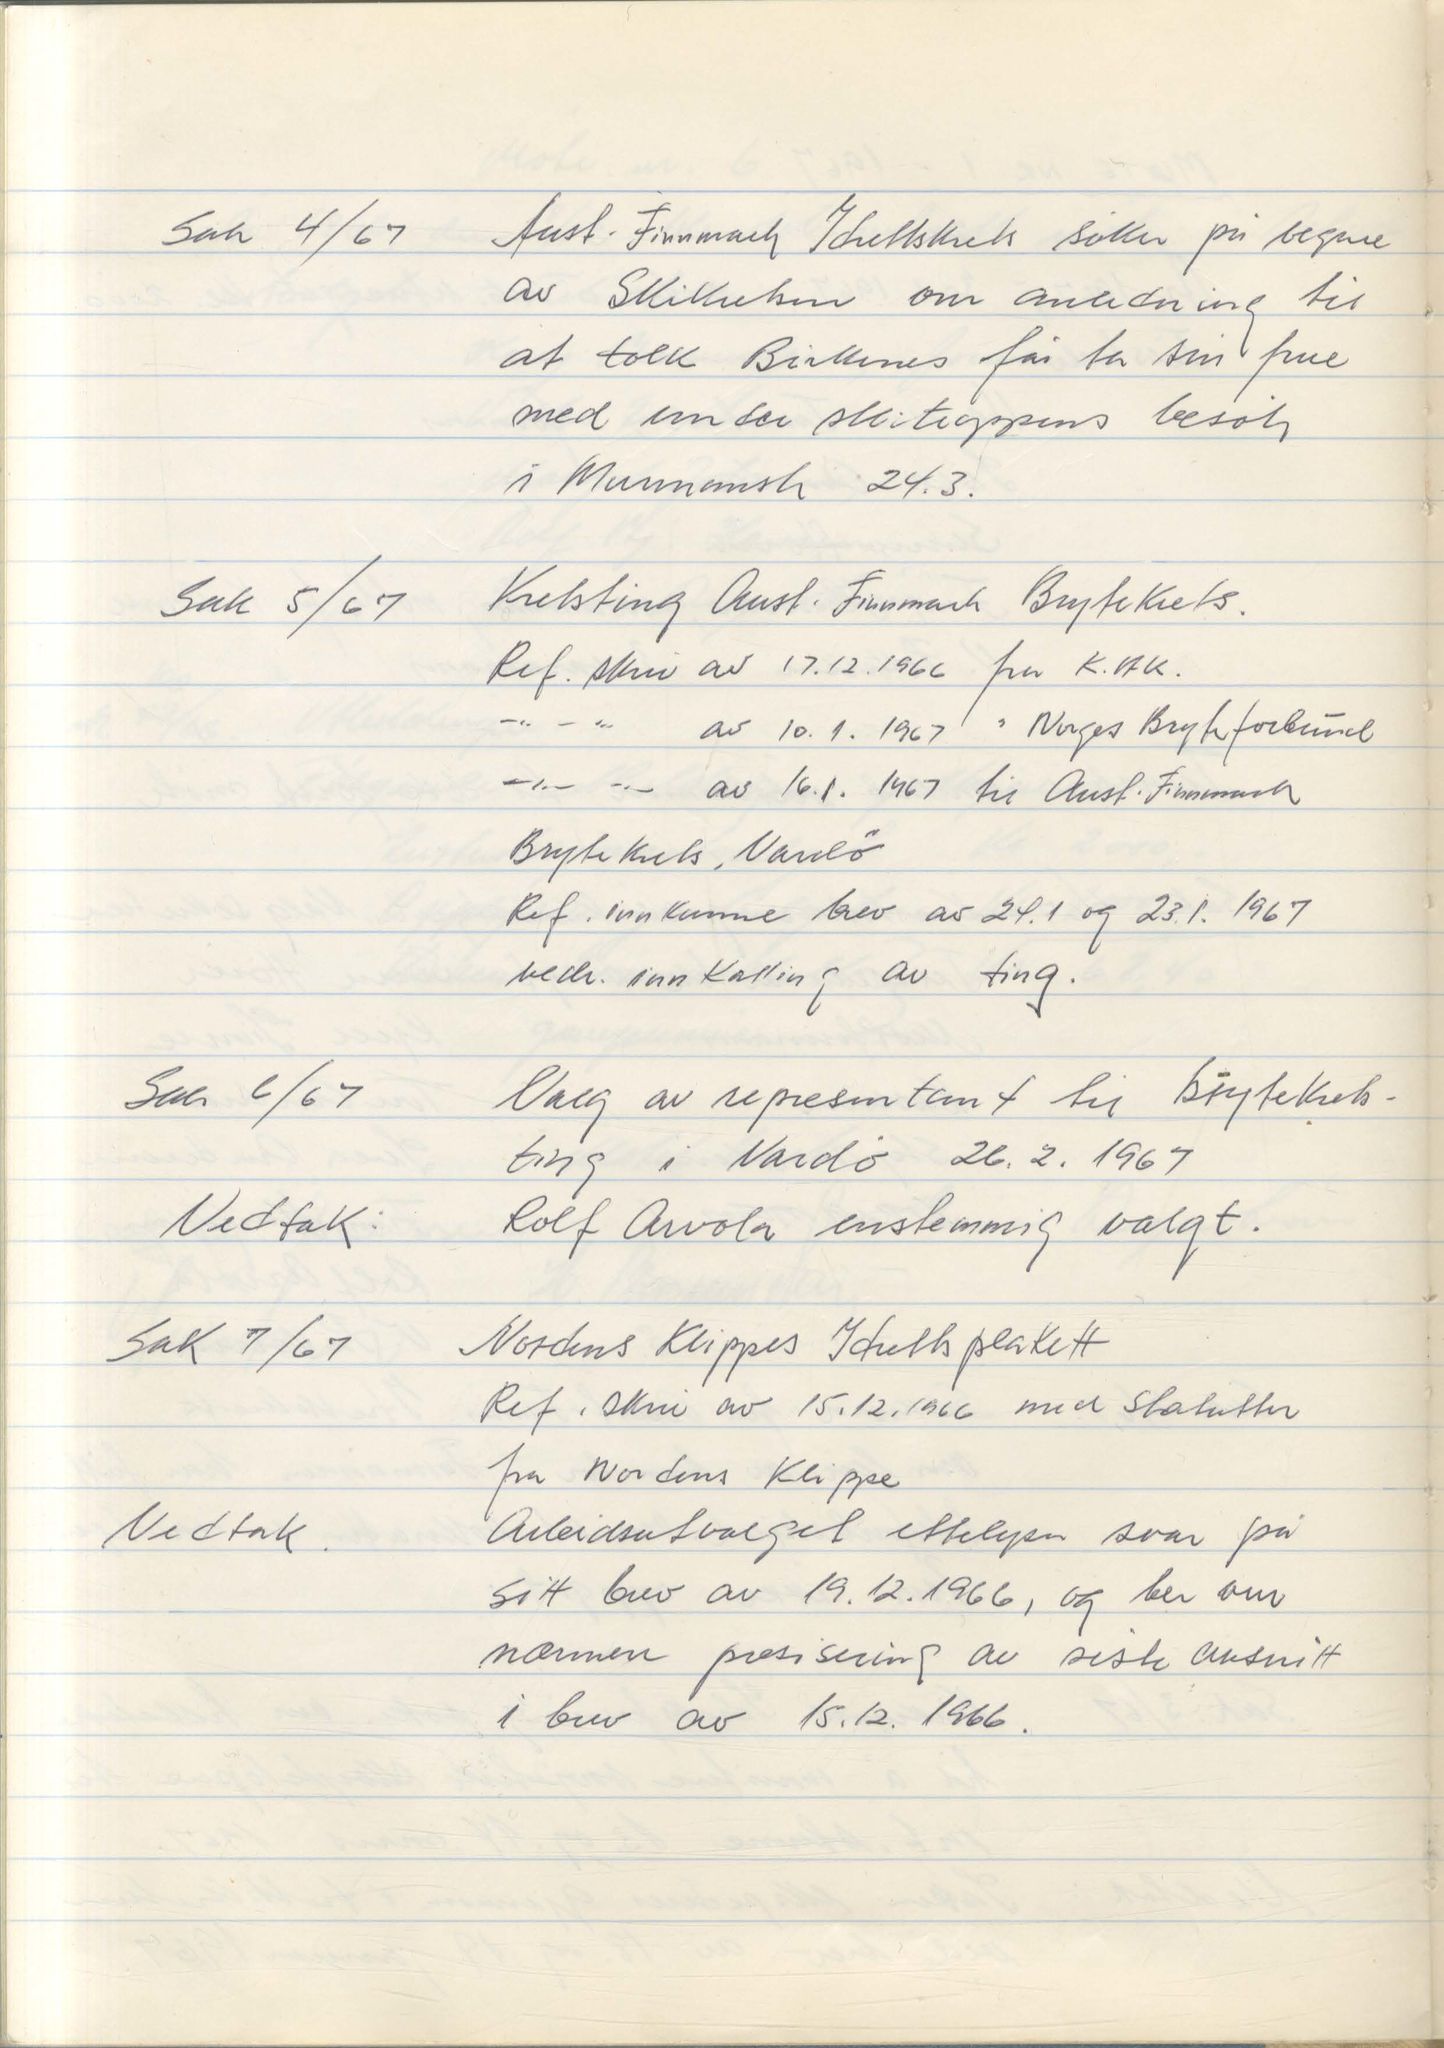 Sak 4/67 Aust-Finnmark Idrettskrets søker på vegne
av Skikretsen om anledning til
at tolk Birkenes får ta sin frue
med under skitroppens besøk
i Murmansk 24.3.
Sak 5/67 Kretsting Aust-Finnmark Brytekrets.
Ref. skriv av 17.12.1966 fra K.AK.
-"- -"- av 10.1.1967 " Norges Bryteforbund
-"- -"- av 16.1.1967 til Aust-Finnmark
Brytekrets, Vardö
Ref. innkomne brev av 24.1 og 23.1.1967
vedr. innkalling av ting.
Sak 6/67 Valg av representant til Brytekrets-
ting i Vardö 26.2.1967
Vedtak: Rolf Arvola enstemmig valgt.
Sak 7/67 Nordens Klippes Idrettsplakett
Ref. skriv av 15.12.1966 med statutter
fra Nordens Klippe
Vedtak. Arbeidsutvalget etterlyser svar på
sitt brev av 19.12.1966, og ber om
nærmere presisering av siste avsnitt
i brev av 15.12.1966.